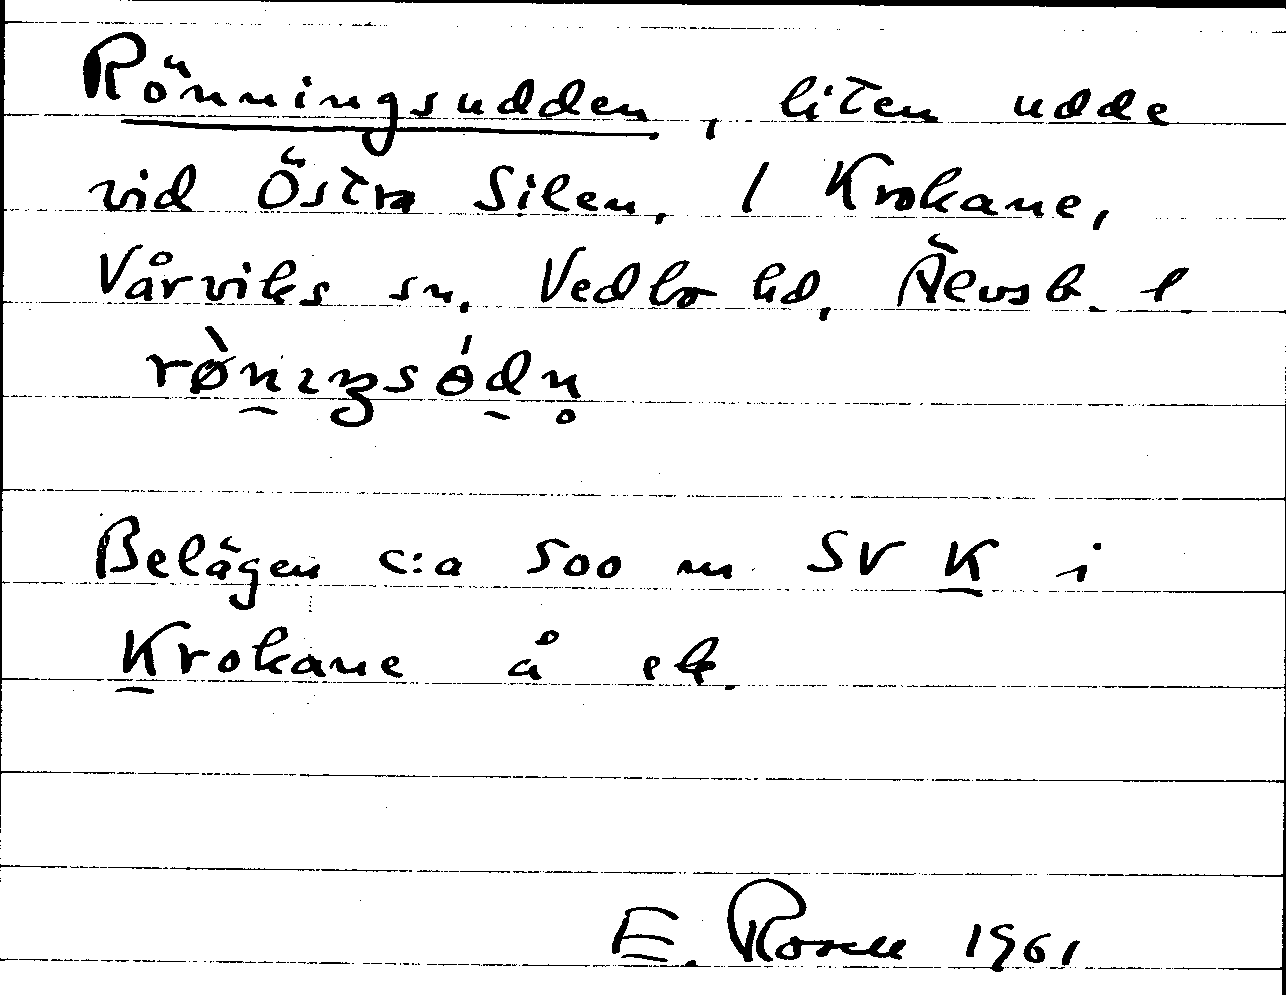 Rönningsudden, liten udde
vid Östra Silen, 1 Krokane,
Vårviks sn, Vedbo hd, Älvsb. l
rø̀n̠ıŋsɵ́d̠n̥
Belägen c:a 500 m SV K i
Krokane å ek.
E. Rosell 1961